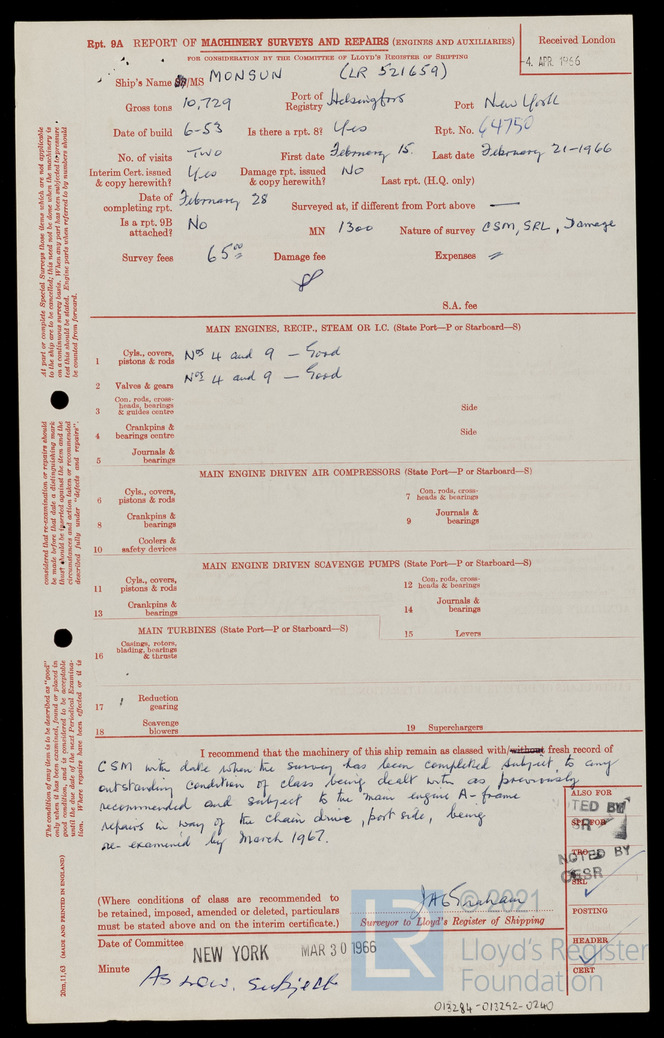 Rpt. 9A REPORT OF MACHINERY SURVEYS AND REPAIRS (ENGINES AND AUXILIARIES)
FOR CONSIDERATION BY THE COMMITTEE OF LLOYD'S REGISTER OF SHIPPING
Received London
-4. APR. 1966
Ship's Name SS/MS MONSUN (LR 521659)
Gross tons 10,729 Port of Registry Helsingfors Port New York
Date of build 6-53 Is there a rpt. 8? Yes Rpt. No. 64750
No. of visits Two First date February 15. Last date February 21-1966
Interim Cert. issued & copy herewith? Yes Damage rpt. issued & copy herewith? No Last rpt. (H.Q. only)
Date of completing rpt. February 28 Surveyed at, if different from Port above —
Is a rpt. 9B attached? No MN 1300 Nature of survey CSM, SRL, Damage
Survey fees 65 00 Damage fee Expenses
S.A. fee
MAIN ENGINES, RECIP., STEAM OR I.C. (State Port—P or Starboard—S)
1 Cyls., covers, pistons & rods Nos 4 and 9 — Good
2 Valves & gears Nos 4 and 9 — Good
3 Con. rods, cross-heads, bearings & guides centre Side
4 Crankpins & bearings centre Side
5 Journals & bearings
MAIN ENGINE DRIVEN AIR COMPRESSORS (State Port—P or Starboard—S)
6 Cyls., covers, pistons & rods 7 Con. rods, cross-heads & bearings
8 Crankpins & bearings 9 Journals & bearings
10 Coolers & safety devices
MAIN ENGINE DRIVEN SCAVENGE PUMPS (State Port—P or Starboard—S)
11 Cyls., covers, pistons & rods 12 Con. rods, cross-heads & bearings
13 Crankpins & bearings 14 Journals & bearings
MAIN TURBINES (State Port—P or Starboard—S) 15 Levers
16 Casings, rotors, blading, bearings & thrusts
17 Reduction gearing
18 Scavenge blowers 19 Superchargers
I recommend that the machinery of this ship remain as classed with/without fresh record of
CSM with date when the survey has been completed subject to any
outstanding condition of class being dealt with as previously
recommended and subject to the main engine A-frame
repairs in way of the chain drive, port side, being
re-examined by March 1967.
ALSO FOR
TED BY
NOTED BY
SRL
POSTING
HEADER
CERT
(Where conditions of class are recommended to
be retained, imposed, amended or deleted, particulars
must be stated above and on the interim certificate.)
Surveyor to Lloyd's Register of Shipping
Date of Committee NEW YORK MAR 30 1966
Minute As now, subject
013284-013292-0240
At part or complete Special Surveys those items which are not applicable
to the ship are to be cancelled; this need not be done when the machinery is
on a continuous survey basis. When any part has been subjected to pressure
test this should be stated. Engine parts when referred to by numbers should
be counted from forward.
considered that re-examination or repairs should
be made before that date a distinguishing mark
thus* should be inserted against the item and the
circumstances and action taken or recommended
described fully under "defects and repairs".
The condition of any item is to be described as "good"
only when it has been examined, found or placed in
good condition, and is considered to be acceptable
until the due date of the next Periodical Examina-
tion. Where repairs have been effected or it is
20m,11,63 (MADE AND PRINTED IN ENGLAND)
LR
© 2021
Lloyd's Register
Foundation